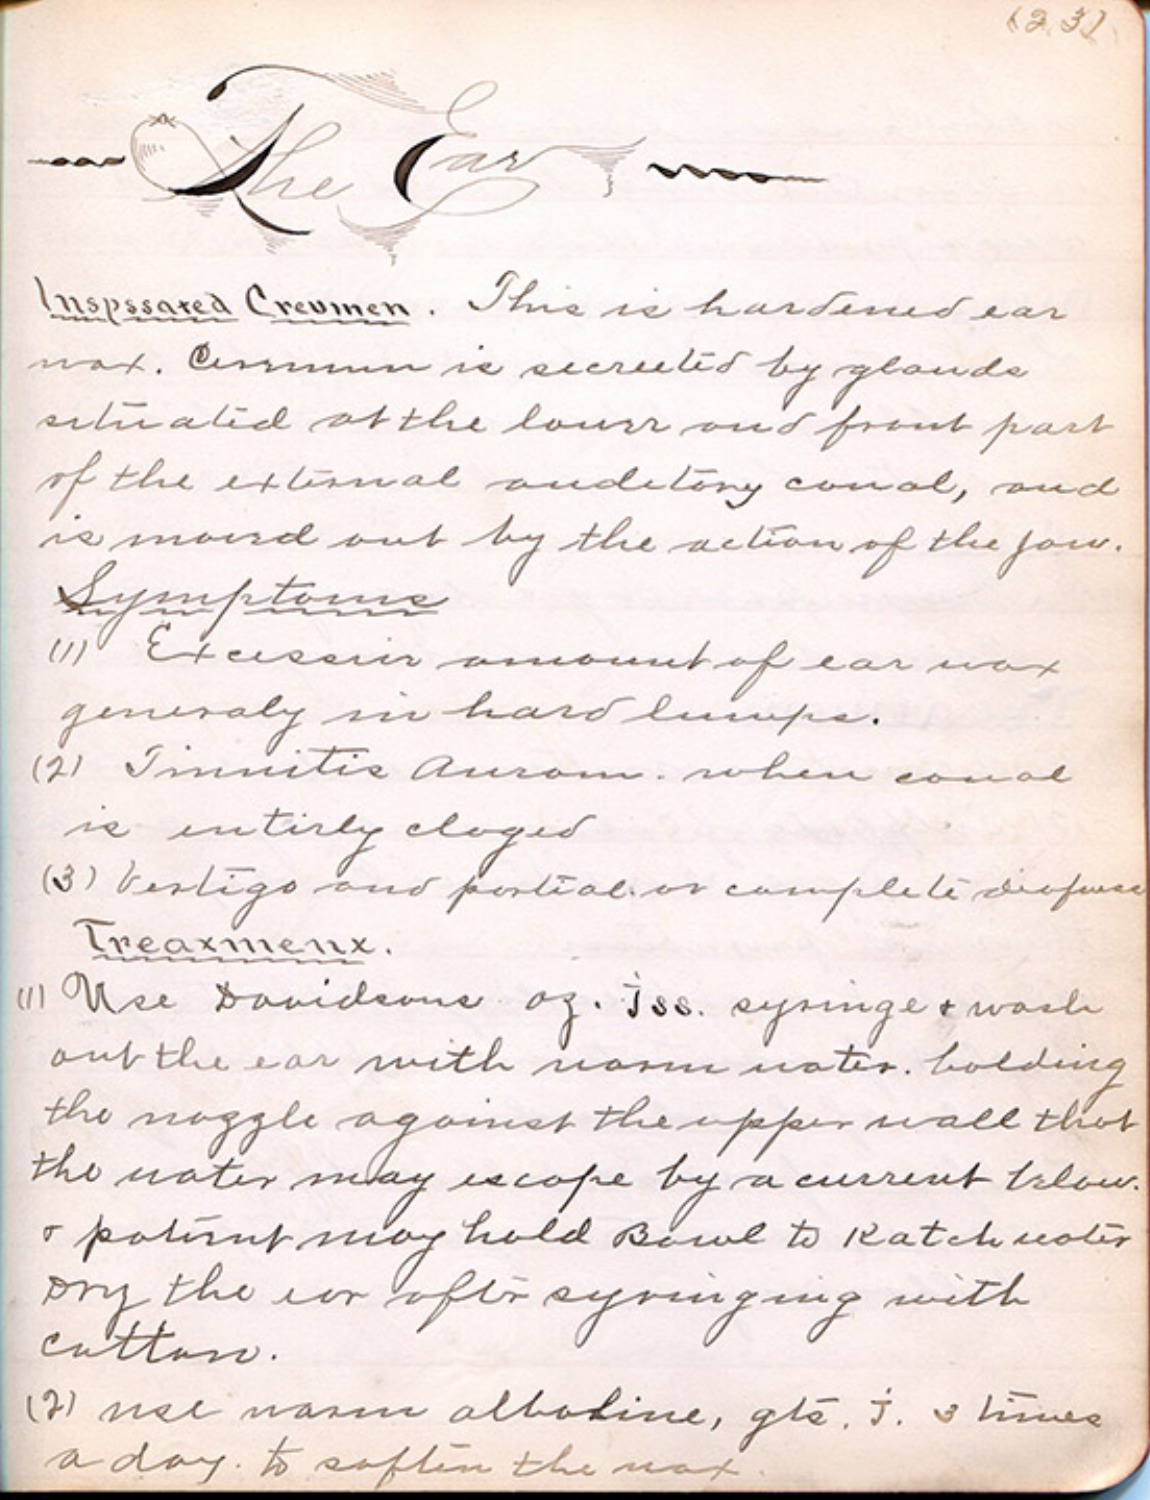 (23)
The Ear
Inspssated Creumen. This is hardened ear
wax. Cerumun is secreeted by glands
situated at the lower and front part
of the external auditory canal, and
is moved out by the action of the jaw.
Symptoms
(1) Excessive amount of ear wax
generaly in hard lumps.
(2) Tinnitis Aurom. when canal
is entirly cloged
(3) Vertigo and partial or complete
Treatment.
(1) Use Davidsons oz. jss. syringe & wash
out the ear with warm water. holding
the nozzle against the upper wall that
the water may escape by a current below.
& patient may hold Bowl to Katch water
Dry the ear after syringing with
cotton.
(2) use warm alboline, gts. j. 3 times
a day. to soften the wax.